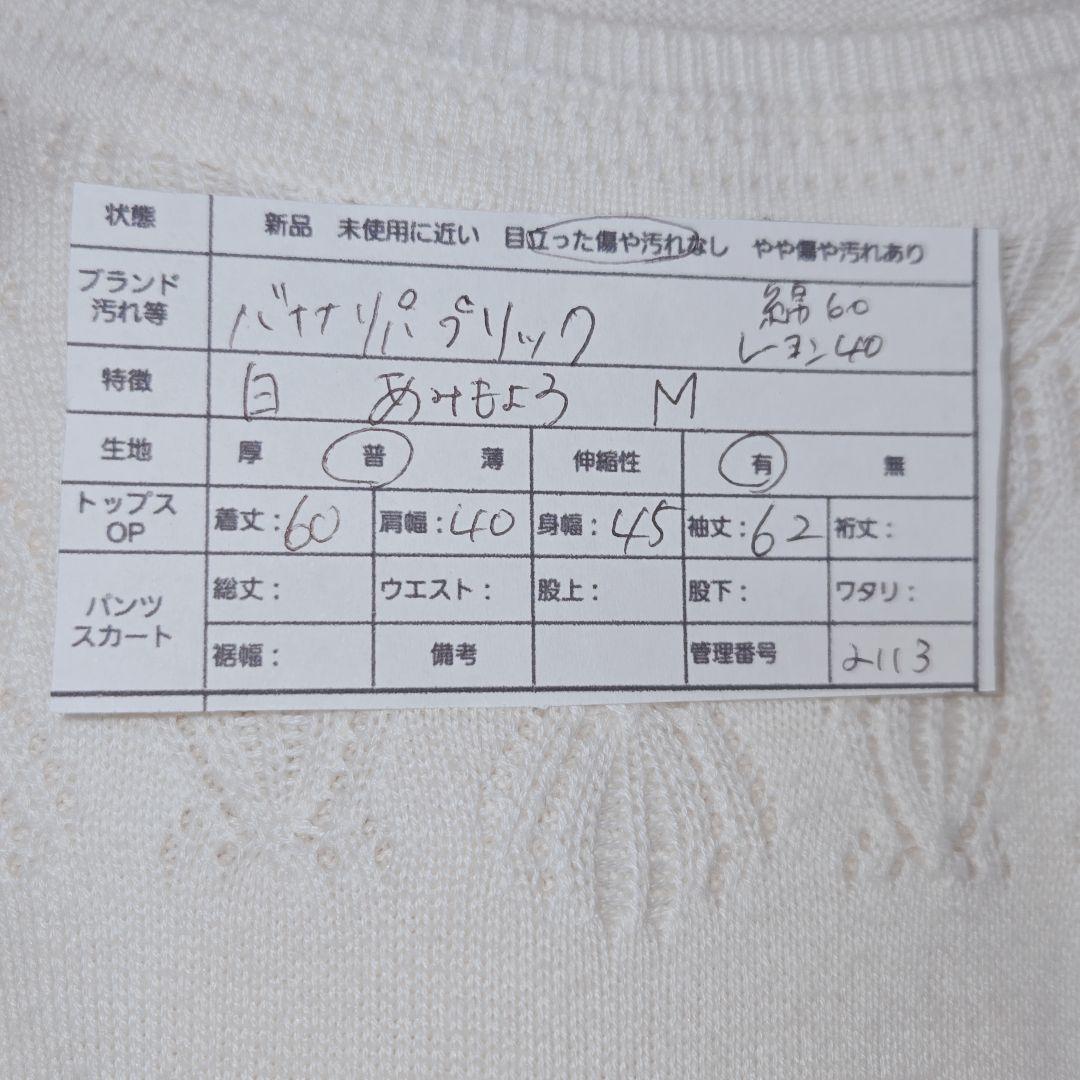 状態 新品 未使用に近い 目立った傷や汚れなし やや傷や汚れあり
ブランド 汚れ等 バナナリパブリック 綿60
レーヨン40
特徴 白 あみもよう M
生地 厚 普 薄 伸縮性 有 無
トップス OP 着丈：60 肩幅：40 身幅：45 袖丈：62 裄丈：
パンツ スカート 総丈： ウエスト： 股上： 股下： ワタリ：
裾幅： 備考 管理番号 2113